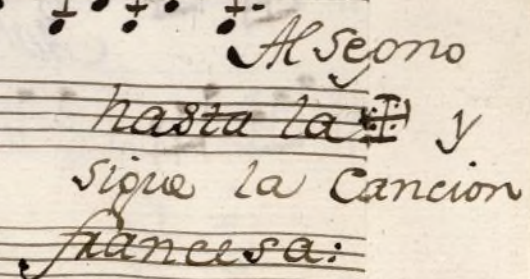 Al segno
hasta la 𝄌 y
sigue la Cancion
francesa: